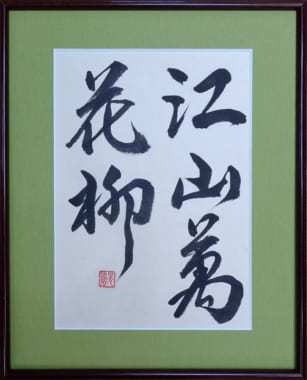 江山萬
花柳